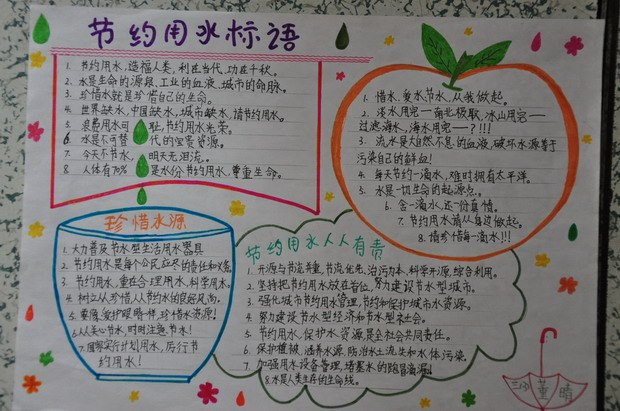 节约用水标语
1. 节约用水,造福人类,利在当代,功在千秋。
2. 水是生命的源泉、工业的血液、城市的命脉。
3. 珍惜水就是珍惜自己的生命。
4. 世界缺水,中国缺水,城市缺水,请节约用水。
5. 浪费用水可耻,节约用水光荣。
6. 水是不可替代的宝贵资源。
7. 今天不节水,明天无泪流。
8. 人体有70%是水份节约用水,尊重生命。
1. 惜水、爱水节水,从我做起。
2. 淡水用完一南北极取,冰山用完一
过滤海水,海水用完一?!!!
3. 流水是大自然不息的血液,破坏水源等于
污染自己的鲜血!
4. 每天节约一滴水,难时拥有太平洋。
5. 水是一切生命的起源点。
6. 含一滴水,还一份真情。
7. 节约用水请从身边做起。
8. 请珍惜每一滴水!!!
珍惜水源
1. 大力普及节水型生活用水器具
2. 节约用水是每个公民应尽的责任和义务。
3. 节约用水,重在合理用水,科学用水。
4. 树立从珍惜人节水的良好风尚。
5. 要像爱护眼睛一样,珍惜水资源!
6. 以人关心节水,时时注意节水!
7. 国家实行计划用水,厉行节
约用水!
节约用水人人有责
1. 开源与节流并重,节流优先、治污为本、科学开源、综合利用。
2. 坚持把节约用水放在首位,努力建设节水型城市。
3. 强化城市节约用水管理,节约和保护城市水资源。
4. 努力建设节水型经济和节水型社会。
5. 节约用水、保护水资源,是全社会共同责任。
6. 保护植被,涵养水源,防治水土流失和水体污染。
7. 加强用水设备管理,堵塞水的跑冒滴漏!
8. 水是人类生存的生命线。
三(1)
董
晴